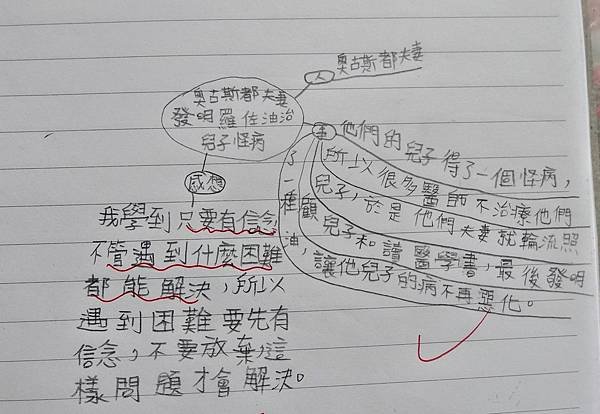 人
奧古斯都夫妻
奧古斯都夫妻
發明羅佳油治
兒子怪病
事
他們的兒子得了一個怪病，
所以很多醫師不治療他們
兒子，於是他們夫妻就輪流照
顧兒子和讀醫學書，最後發明
了一種油，讓他兒子的病不再惡化。
感想
我學到只要有信念
不管遇到什麼困難
都能解決，所以
遇到困難要先有
信念，不要放棄，這
樣問題才會解決。